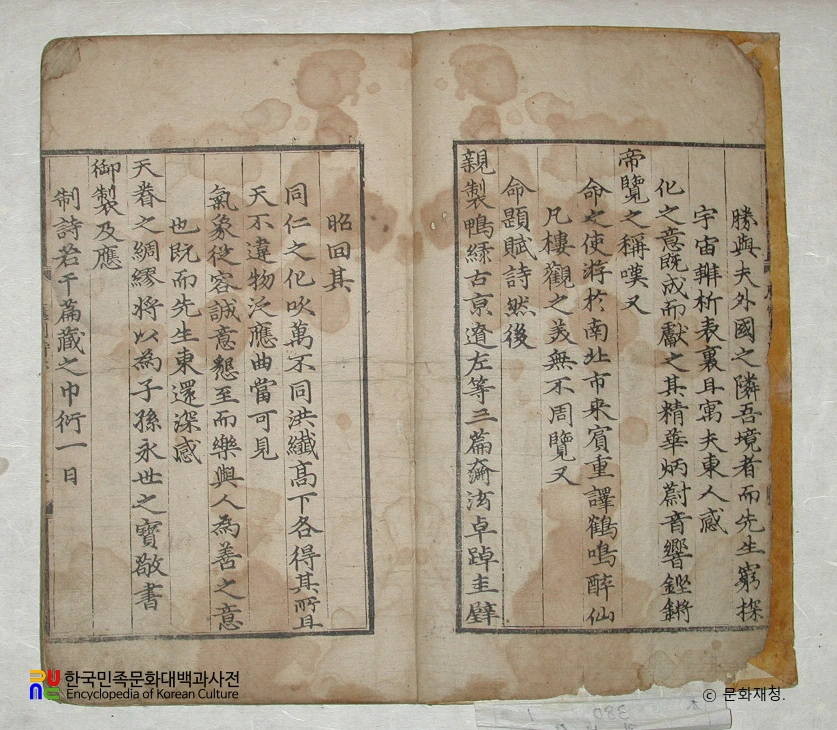 勝與夫外國之隣吾境者而先生窮探
宇宙辨析表裏且寓夫東人感
化之意既成而獻之其精華炳蔚音響鏗鏘
帝覽之稱嘆又
命之使游於南北市來賓重譯鶴鳴醉仙
凡樓觀之美無不周覽又
命題賦詩然後
親製鴨綠古京遼左等三篇
卓踔圭璧
昭回其
同仁之化吹萬不同洪纖高下各得其所且
天不違物泛應曲當可見
氣象從容誠意懇至而樂與人為善之意
也既而先生東還深感
天眷之綢繆將以為子孫永世之寶敬書
御製及應
制詩若干篇藏之巾衍一日
한국민족문화대백과사전
Encyclopedia of Korean Culture
© 문화재청.
380
1